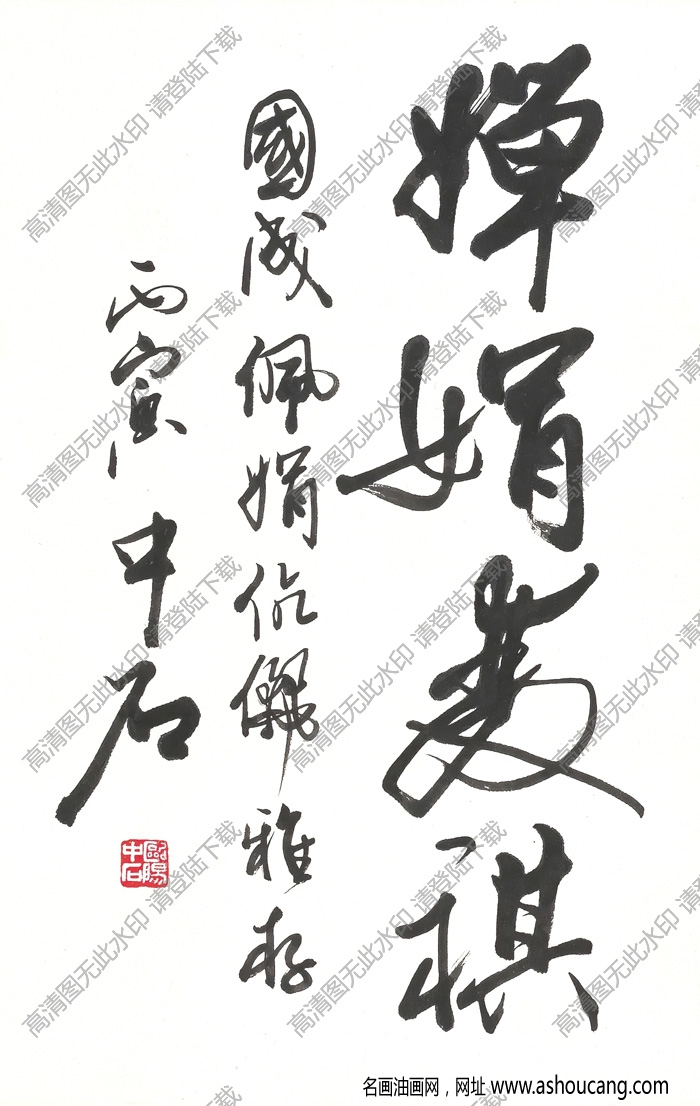 嬋娟祺
國成佩娟伉儷雅存
丙寅 中石
歐陽中石
高清图无此水印 请登陆下载
名画油画网，网址 www.ashoucang.com